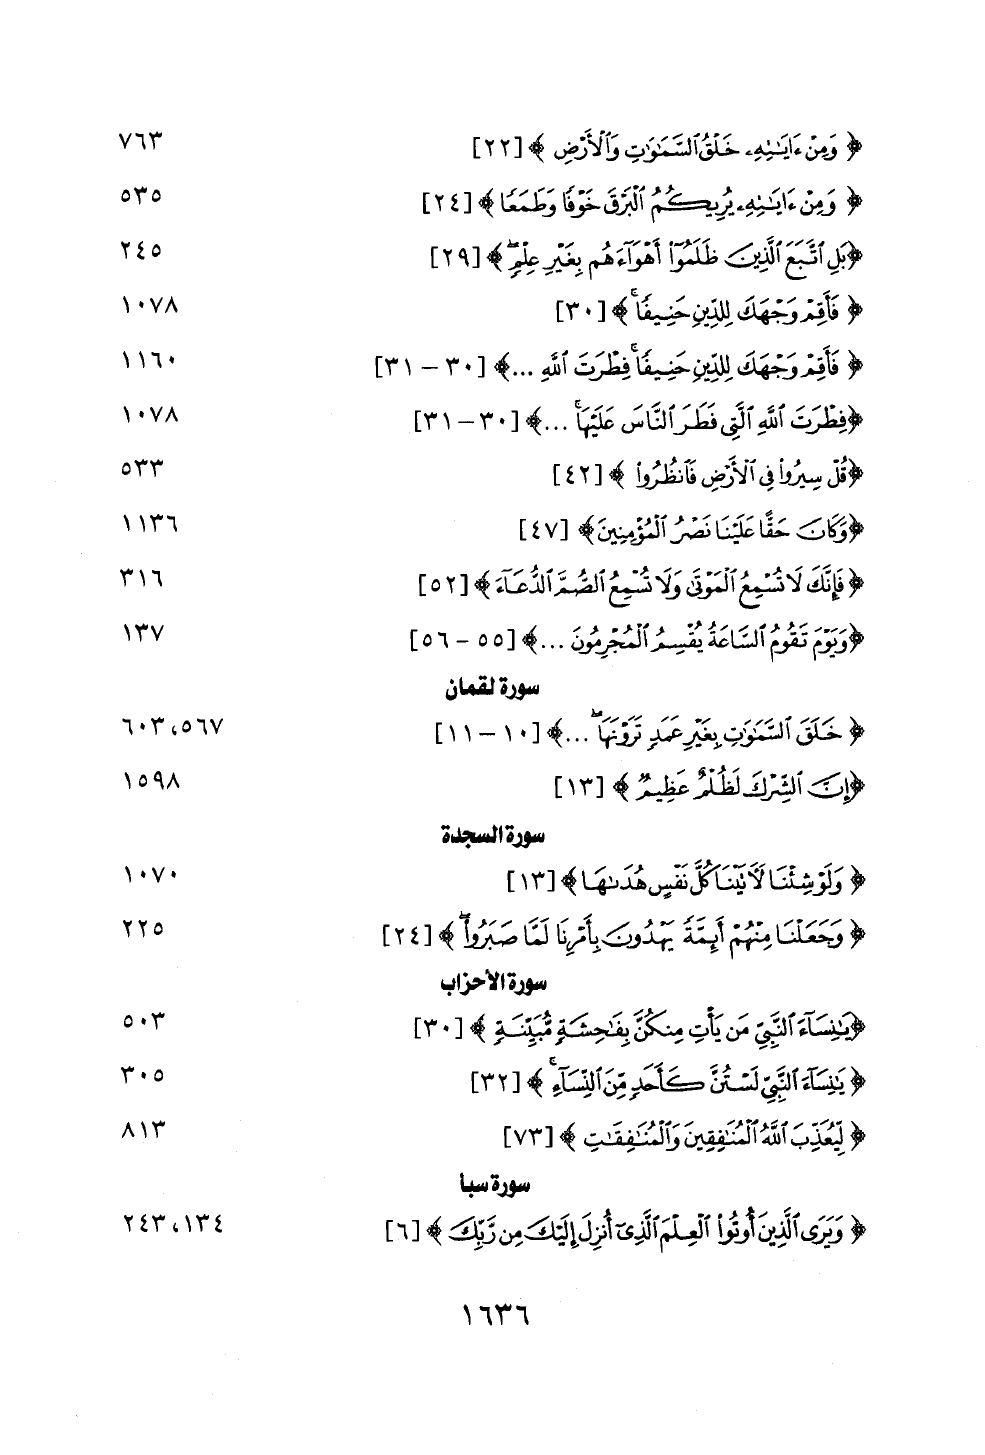 ﴿ وَمِنْ ءَايَٰتِهِۦ خَلْقُ ٱلسَّمَٰوَٰتِ وَٱلْأَرْضِ ﴾ [٢٢] ٧٦٣
﴿ وَمِنْ ءَايَٰتِهِۦ يُرِيكُمُ ٱلْبَرْقَ خَوْفًا وَطَمَعًا ﴾ [٢٤] ٥٣٥
﴿بَلِ ٱتَّبَعَ ٱلَّذِينَ ظَلَمُوٓا۟ أَهْوَآءَهُم بِغَيْرِ عِلْمٍۖ ﴾ [٢٩] ٢٤٥
﴿ فَأَقِمْ وَجْهَكَ لِلدِّينِ حَنِيفًاۚ ﴾ [٣٠] ١٠٧٨
﴿ فَأَقِمْ وَجْهَكَ لِلدِّينِ حَنِيفًاۚ فِطْرَتَ ٱللَّهِ ...﴾ [٣٠ – ٣١] ١١٦٠
﴿فِطْرَتَ ٱللَّهِ ٱلَّتِى فَطَرَ ٱلنَّاسَ عَلَيْهَاۚ ...﴾ [٣٠ – ٣١] ١٠٧٨
﴿قُلْ سِيرُوا۟ فِى ٱلْأَرْضِ فَٱنظُرُوا۟ ﴾ [٤٢] ٥٣٣
﴿وَكَانَ حَقًّا عَلَيْنَا نَصْرُ ٱلْمُؤْمِنِينَ﴾ [٤٧] ١١٣٦
﴿ فَإِنَّكَ لَا تُسْمِعُ ٱلْمَوْتَىٰ وَلَا تُسْمِعُ ٱلصُّمَّ ٱلدُّعَآءَ ﴾ [٥٢] ٣١٦
﴿وَيَوْمَ تَقُومُ ٱلسَّاعَةُ يُقْسِمُ ٱلْمُجْرِمُونَ ...﴾ [٥٥ – ٥٦] ١٣٧
سورة لقمان
﴿ خَلَقَ ٱلسَّمَٰوَٰتِ بِغَيْرِ عَمَدٍ تَرَوْنَهَاۖ ...﴾ [١٠ – ١١] ٥٦٧، ٦٠٣
﴿إِنَّ ٱلشِّرْكَ لَظُلْمٌ عَظِيمٌ ﴾ [١٣] ١٥٩٨
سورة السجدة
﴿ وَلَوْ شِئْنَا لَءَاتَيْنَا كُلَّ نَفْسٍ هُدَىٰهَا ﴾ [١٣] ١٠٧٠
﴿ وَجَعَلْنَا مِنْهُمْ أَئِمَّةً يَهْدُونَ بِأَمْرِنَا لَمَّا صَبَرُوا۟ۖ ﴾ [٢٤] ٢٢٥
سورة الأحزاب
﴿يَٰنِسَآءَ ٱلنَّبِىِّ مَن يَأْتِ مِنكُنَّ بِفَٰحِشَةٍ مُّبَيِّنَةٍ ﴾ [٣٠] ٥٠٣
﴿ يَٰنِسَآءَ ٱلنَّبِىِّ لَسْتُنَّ كَأَحَدٍ مِّنَ ٱلنِّسَآءِۚ ﴾ [٣٢] ٣٠٥
﴿ لِّيُعَذِّبَ ٱللَّهُ ٱلْمُنَٰفِقِينَ وَٱلْمُنَٰفِقَٰتِ ﴾ [٧٣] ٨١٣
سورة سبأ
﴿ وَيَرَى ٱلَّذِينَ أُوتُوا۟ ٱلْعِلْمَ ٱلَّذِىٓ أُنزِلَ إِلَيْكَ مِن رَّبِّكَ ﴾ [٦] ١٣٤، ٢٤٣
١٦٣٦